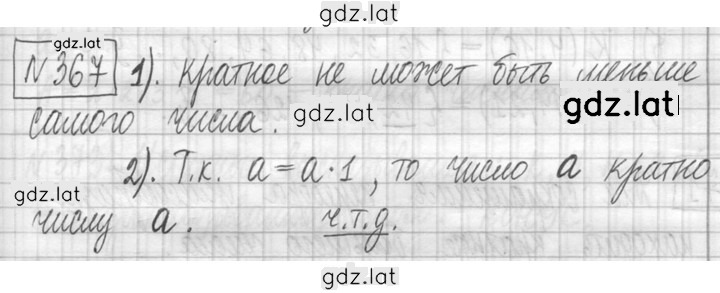 gdz.lat
gdz.lat
№367 1). Кратное не может быть меньше
самого числа. gdz.lat gdz.lat
2). Т.к. a = a · 1, то число a кратно
gdz.lat
числу a. ч.т.д.
gdz.lat